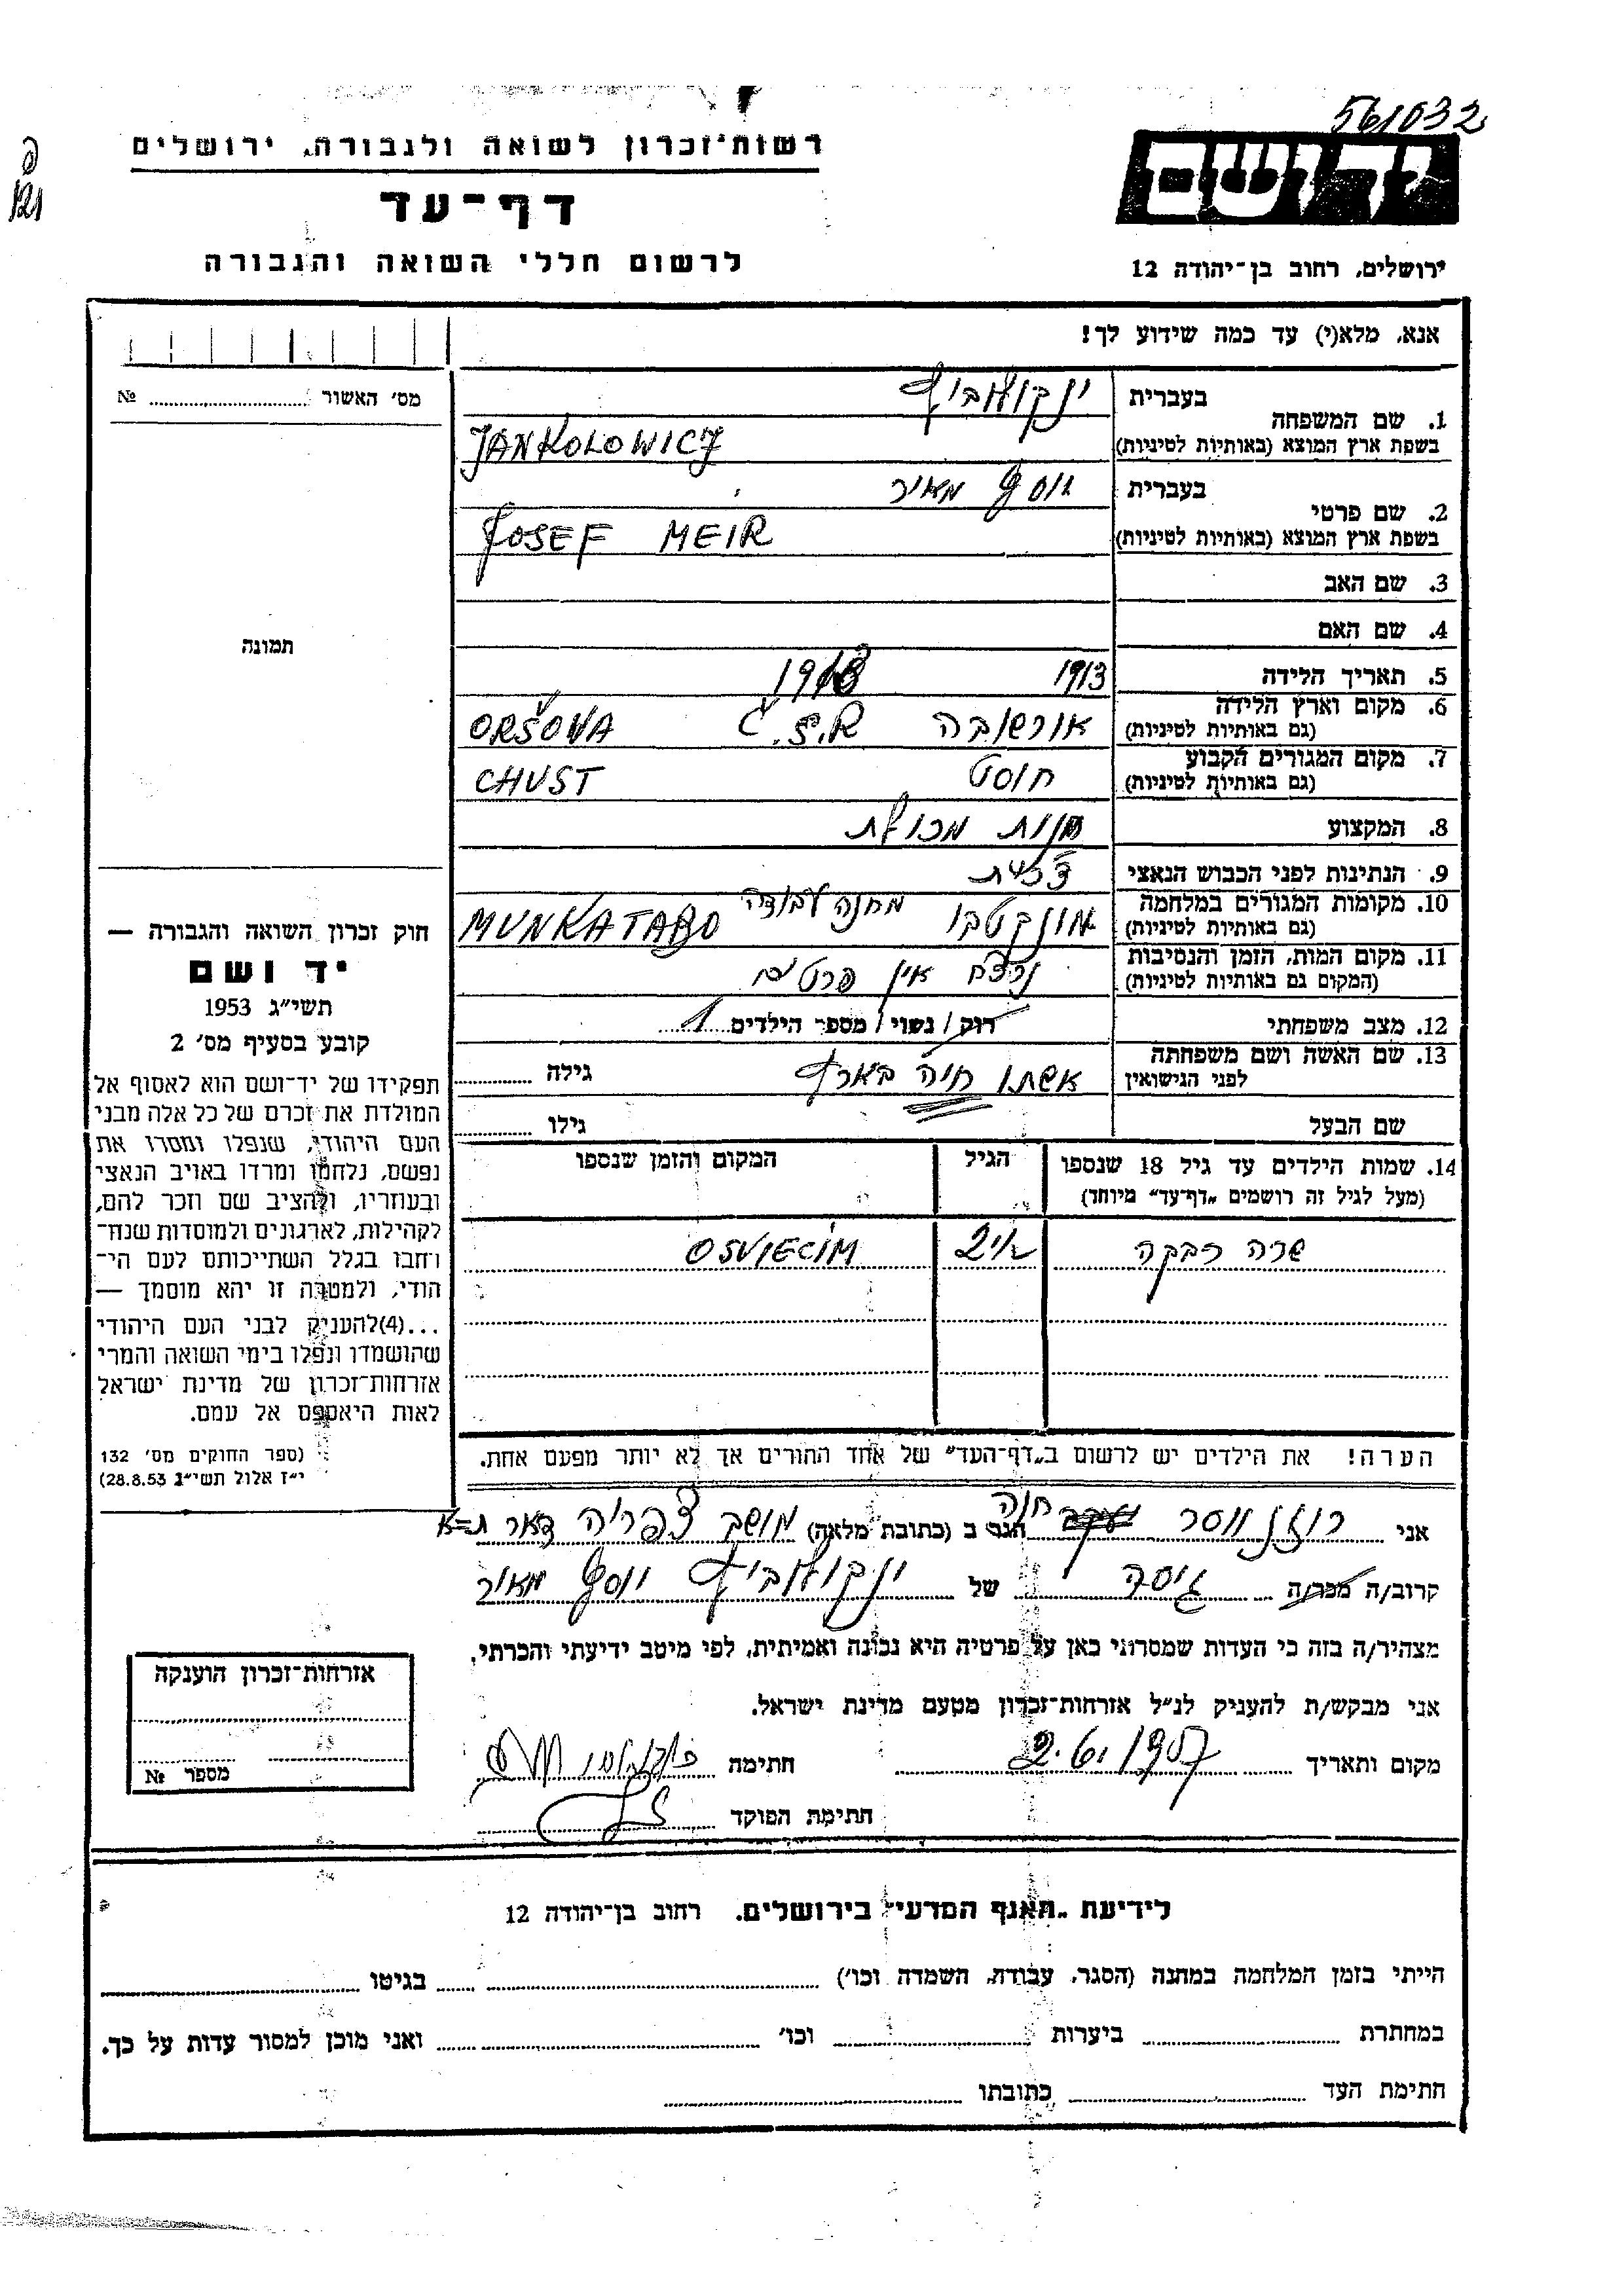 561032
רשות־זכרון לשואה ולגבורה, ירושלים
דף־עד
לרשום חללי השואה והגבורה
ירושלים, רחוב בן־יהודה 12
121
אנא, מלא(י) עד כמה שידוע לך!
מס׳ האשור № 
1. שם המשפחה
בעברית ינקולוביץ
בשפת ארץ המוצא (באותיות לטיניות) JANKOLOWICZ
2. שם פרטי
בעברית יוסף מאיר
בשפת ארץ המוצא (באותיות לטיניות) JOSEF MEIR
3. שם האב
4. שם האם
תמונה
5. תאריך הלידה 1913
6. מקום וארץ הלידה (גם באותיות לטיניות) אורשובה Č.S.R. ORŠOVA
7. מקום המגורים הקבוע (גם באותיות לטיניות) חוסט CHUST
8. המקצוע חנות מכולת
9. הנתינות לפני הכבוש הנאצי צ׳כית
10. מקומות המגורים במלחמה (גם באותיות לטיניות) מונקטבו מחנה עבודה MUNKATABO
11. מקום המות, הזמן והנסיבות (המקום גם באותיות לטיניות) נרצח אין פרטים
12. מצב משפחתי רוק/ נשוי/ מספר הילדים 1
13. שם האשה ושם משפחתה לפני הנישואין אשתו חיה גילה
שם הבעל גילו
14. שמות הילדים עד גיל 18 שנספו (מעל לגיל זה רושמים „דף־עד״ מיוחד) הגיל המקום והזמן שנספו
שרה רבקה 2 OSVIECIM
הערה! את הילדים יש לרשום ב„דף־העד״ של אחד ההורים אך לא יותר מפעם אחת.
חוק זכרון השואה והגבורה —
יד ושם
תשי״ג 1953
קובע בסעיף מס׳ 2
תפקידו של יד־ושם הוא לאסוף אל
המולדת את זכרם של כל אלה מבני
העם היהודי, שנפלו ומסרו את
נפשם, נלחמו ומרדו באויב הנאצי
ובעוזריו, ולהציב שם וזכר להם,
לקהילות, לארגונים ולמוסדות שנח־
רחבו בגלל השתייכותם לעם הי־
הודי, ולמטרה זו יהא מוסמך —
...(4)להעניק לבני העם היהודי
שהושמדו ונפלו בימי השואה והמרי
אזרחות־זכרון של מדינת ישראל
לאות היאספם אל עמם.
(ספר החוקים מס׳ 132
י״ז אלול תשי״ג 28.8.53)
אני רוזנווסר חוה הגר ב (כתובת מלאה) מושב צפריה דאר ת=א
קרוב/ה מכר/ה גיסה של ינקולוביץ יוסף מאיר
מצהיר/ה בזה כי העדות שמסרתי כאן על פרטיה היא נכונה ואמיתית, לפי מיטב ידיעתי והכרתי.
אני מבקש/ת להעניק לנ״ל אזרחות־זכרון מטעם מדינת ישראל.
מקום ותאריך 2.6.1957 חתימה
חתימת הפוקד
אזרחות־זכרון הוענקה
מספר №
לידיעת „האגף המדעי״ בירושלים, רחוב בן־יהודה 12
הייתי בזמן המלחמה במחנה (הסגר, עבודה, השמדה וכו׳) בגיטו
במחתרת ביערות וכו׳ ואני מוכן למסור עדות על כך.
חתימת העד כתובתו